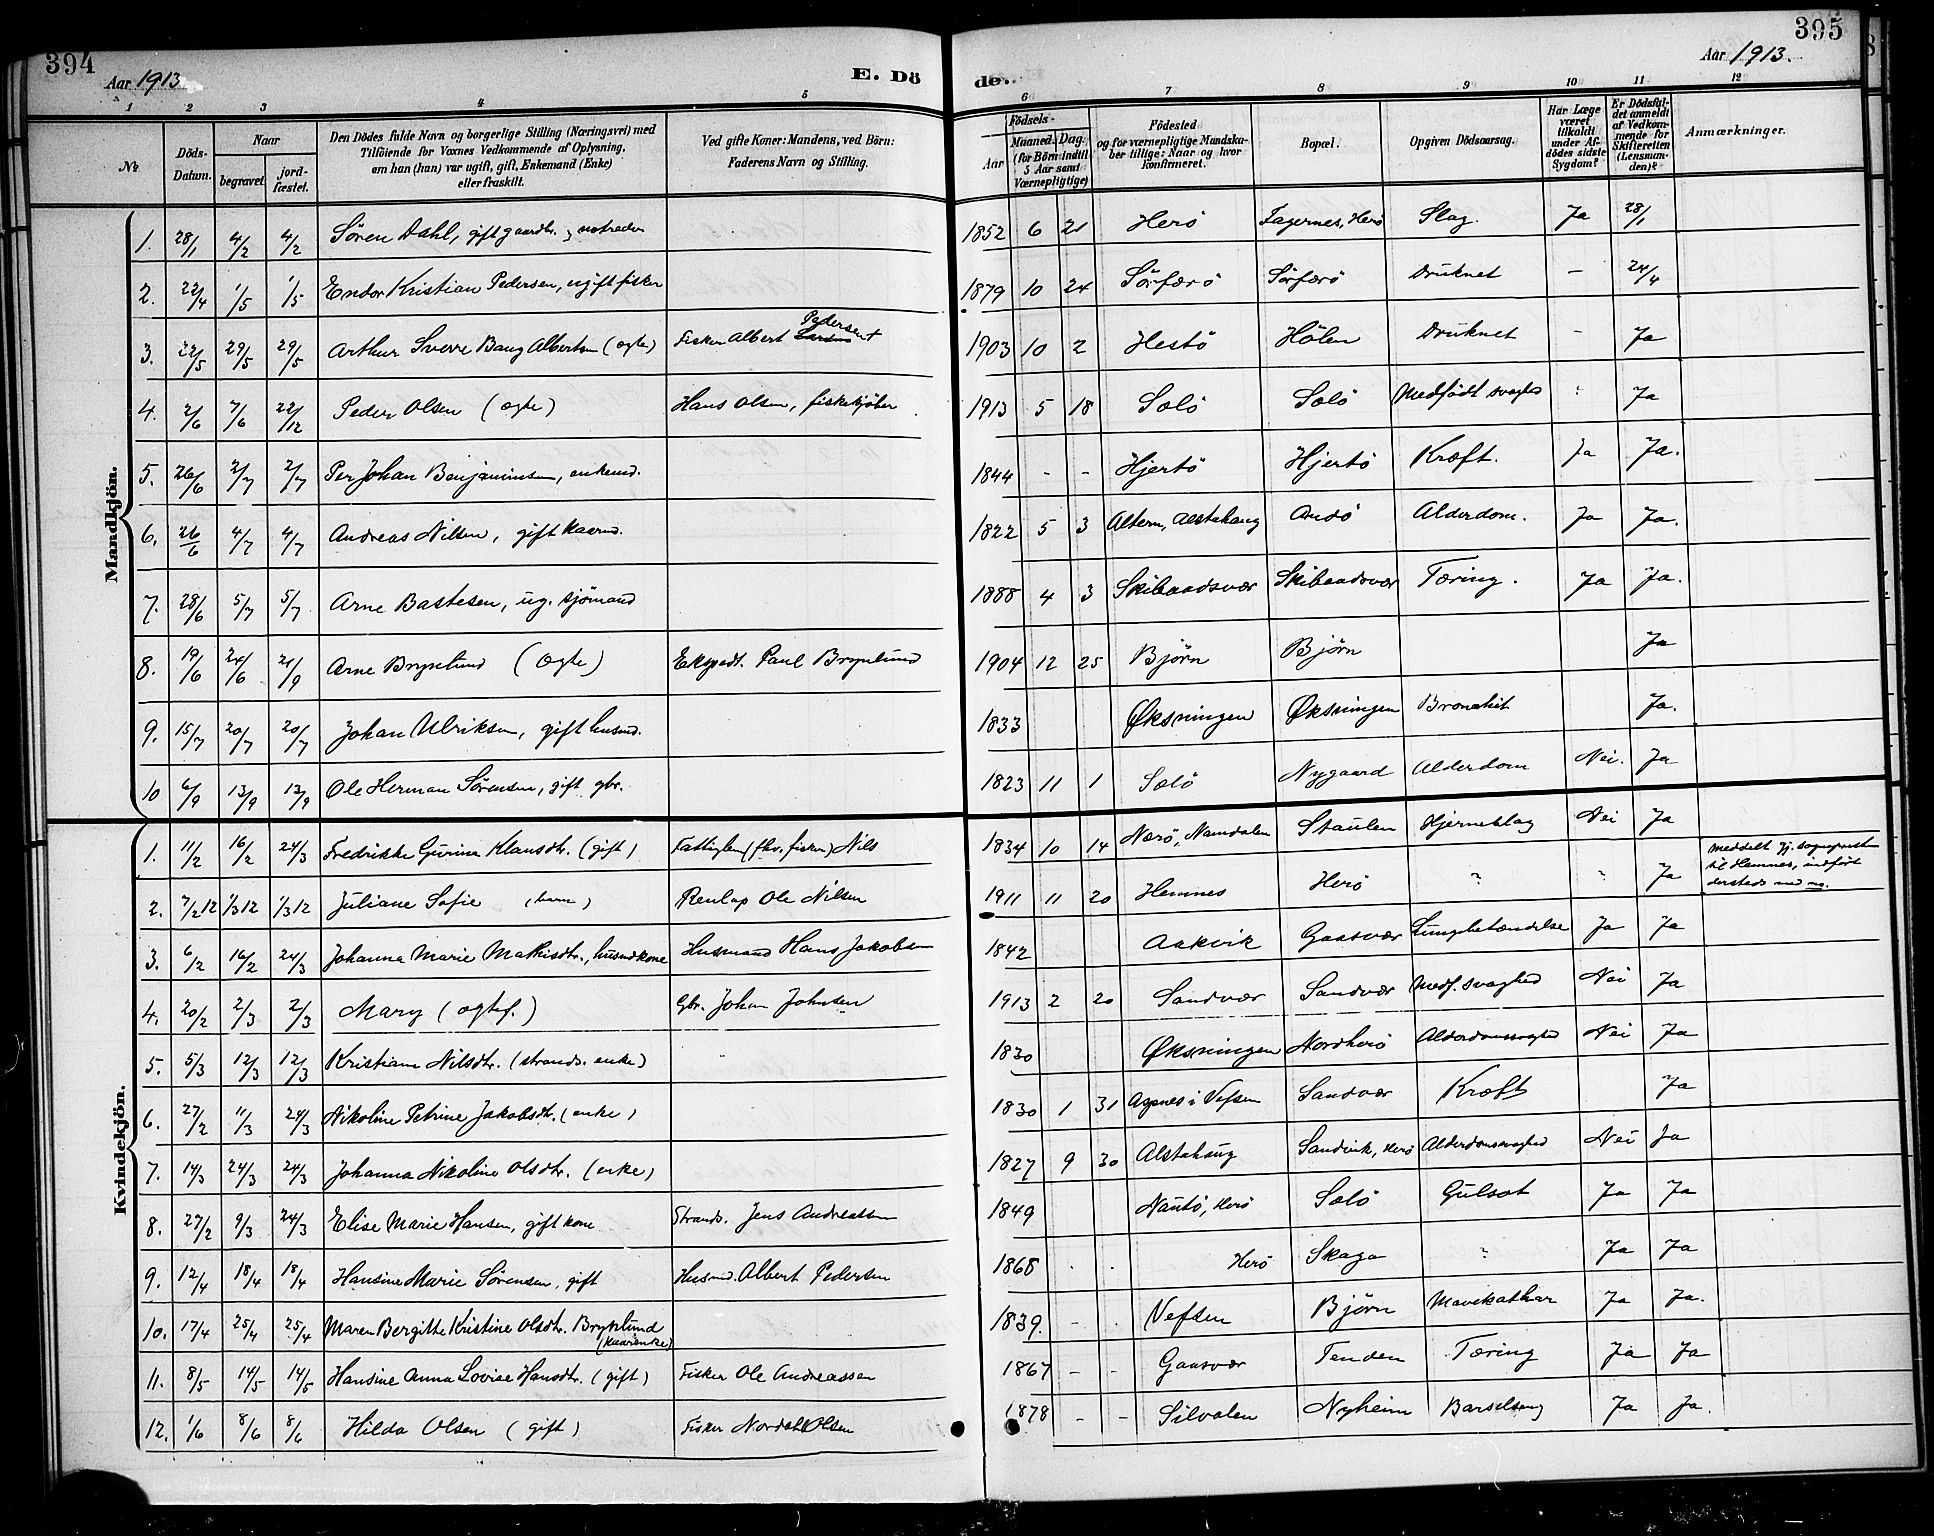 394
Aar 1913
E. Dö
de.
Aar 1913.
395
1 2 3 4 5 6 7 8 9 10 11 12
No
Döds-Datum.
Naar
begravet.
jord-fæstet.
Den Dödes fulde Navn og borgerlige Stilling (Næringsvei) med
Tilföiende for Voxnes Vedkommende af Oplysning,
om han (hun) var ugift, gift, Enkemand (Enke)
eller fraskilt.
Ved gifte Koner: Mandens, ved Börn:
Faderens Navn og Stilling.
Födsels-
Aar
Maaned. Dag.
(for Börn indtil
5 Aar samt
Værnepligtige)
Födested
og for værnepligtige Mandska-
ber tillige: Naar og hvor
konfirmeret.
Bopæl.
Opgiven Dödsaarsag.
Har Læge
været
tilkaldt
under Af-
dödes sidste
Sygdom?
Er Dödsfal-
det anmeldt
af Vedkom-
mende for
Skifteretten
(Lensman-
den)?
Anmærkninger.
Mandkjön.
1. 28/1 4/2 4/2 Sören Dahl, gift gaardbr. 1852 6 21 Herö Fagernes, Herö Slag. Ja 28/1
2. 22/4 1/5 1/5 Endor Kristian Pedersen, ugift fisker 1879 10 24 Sörfærö Sörfærö Druknet - 24/4
3. 22/5 29/5 29/5 Arthur Sverre Baug Albertsen (ægte) Fisker Albert Pedersen 1903 10 2 Hestö Hölen Druknet - Ja
4. 2/6 7/6 22/12 Peder Olsen (ægte) Hans Olsen, fiskekjöber 1913 5 18 Solö Solö Medfödt svaghed Ja
5. 26/6 2/7 2/7 Per Johan Benjaminsen, enkemd. 1844 - - Hjertö Hjertö Kræft. Ja Ja.
6. 26/6 4/7 4/7 Andreas Nilsen, gift kaarmd. 1822 5 3 Altern, Alstahaug Andö Alderdom. Ja Ja.
7. 28/6 5/7 5/7 Arne Bastesen, ug. sjömand 1888 4 3 Skibaadsvær Skibaadsvær Tæring. Ja Ja.
8. 19/6 24/6 21/9 Arne Brynlund (ægte) Ekspedt. Paul Brynlund 1904 12 25 Björn Björn Ja
9. 15/7 20/7 20/7 Johan Ulriksen, gift husmd. 1833 Øksningen Øksningen Bronchit Ja.
10 6/9 13/9 13/9 Ole Herman Sörensen, gift gbr. 1823 11 1 Solö Nygaard Alderdom Nei. Ja
Kvindekjön.
1. 11/2 16/2 24/3 Fredrikke Gurine Klausdtr. (gift) Fattiglem (fhv. fisker) Nils 1834 10 14 Nærö, Namdalen Staulen Hjerneslag Nei Ja
2. 7/2 12 1/3 12 1/3 12 Juliane Sofie (barn) Renlap Ole Nilsen 1911 11 20 Hemnes Herö ? " Ja meddelt gj. sogneprest
til Hemnes, indført
dersteds med no.
3. 6/2 16/2 24/3 Johanna Marie Mathisdtr., husmdkone Husmand Hans Jakobsen 1842 Aakvik Gaasvær Lungebetændelse Ja Ja
4. 20/2 2/3 2/3 Mary (ægtef.) Gbr. Johan Johnsen 1913 2 20 Sandvær Sandvær Medf. svaghed Nei Ja
5. 5/3 12/3 12/3 Kristiane Nilsdtr. (strands. enke) 1830 Øksningen Nordherö Alderdomssvaghed Nei Ja
6. 27/2 11/3 24/3 Nikoline Petrine Jakobsdtr. (enke) 1830 1 31 Agnes i Vefsen Sandvær Kræft Ja
7. 14/3 24/3 24/3 Johanna Nikoline Olsdtr. (enke) 1827 9 30 Alstahaug Sandvik, Herö Alderdomssvaghed Nei Ja
8. 27/2 9/3 24/3 Elise Marie Hansen, gift kone Strands. Jens Andreassen 1849 Nautö, Herö Solö Gulsot Ja Ja
9. 12/4 18/4 18/4 Hansine Marie Sørensen, gift Husmd. Albert Pedersen 1868 Herö Skaga ? Ja Ja
10. 17/4 25/4 25/4 Maren Bergitte Kristine Olsdtr. Brynlund
(kaarenke) 1839. - - Vefsen Björn Mavekathar Ja Ja.
11. 8/5 14/5 14/5 Hansine Anna Lovise Hansdtr. (gift) Fisker Ole Andreassen 1867 - - Gaasvær Tenden Tæring Ja Ja
12. 1/6 8/6 8/6 Hilda Olsen (gift) Fisker Nordahl Olsen 1878 - - Silvalen Nyheim Barselseng Ja Ja.